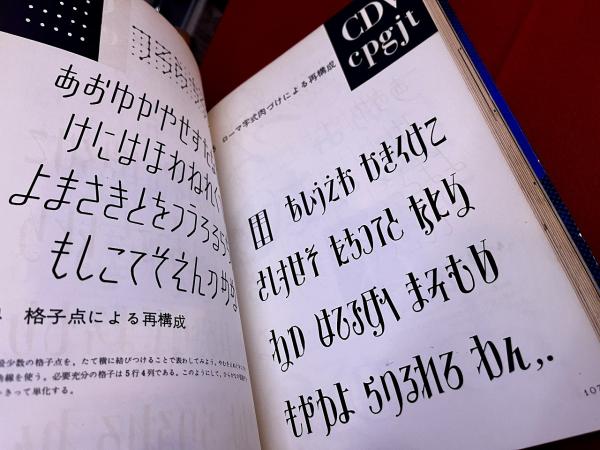 あおゆかやせすた
けにはほわねれぐ
よまさきとをつうろるら
もしこてそえんのり
格子点による再構成
最少数の格子点を,たて横に結びつけることで表わしてみよう。
曲線を使う。必要充分の格子は5行4列である。このようにして,
きって単化する。
CDV
cpgjt
ローマ字式肉づけによる再構成
あいうえお かきくけこ
さしすせそ たちつてと なにぬ
ねの はひふへほ まみむめ
もやゆよ らりるれろ わん,.
107